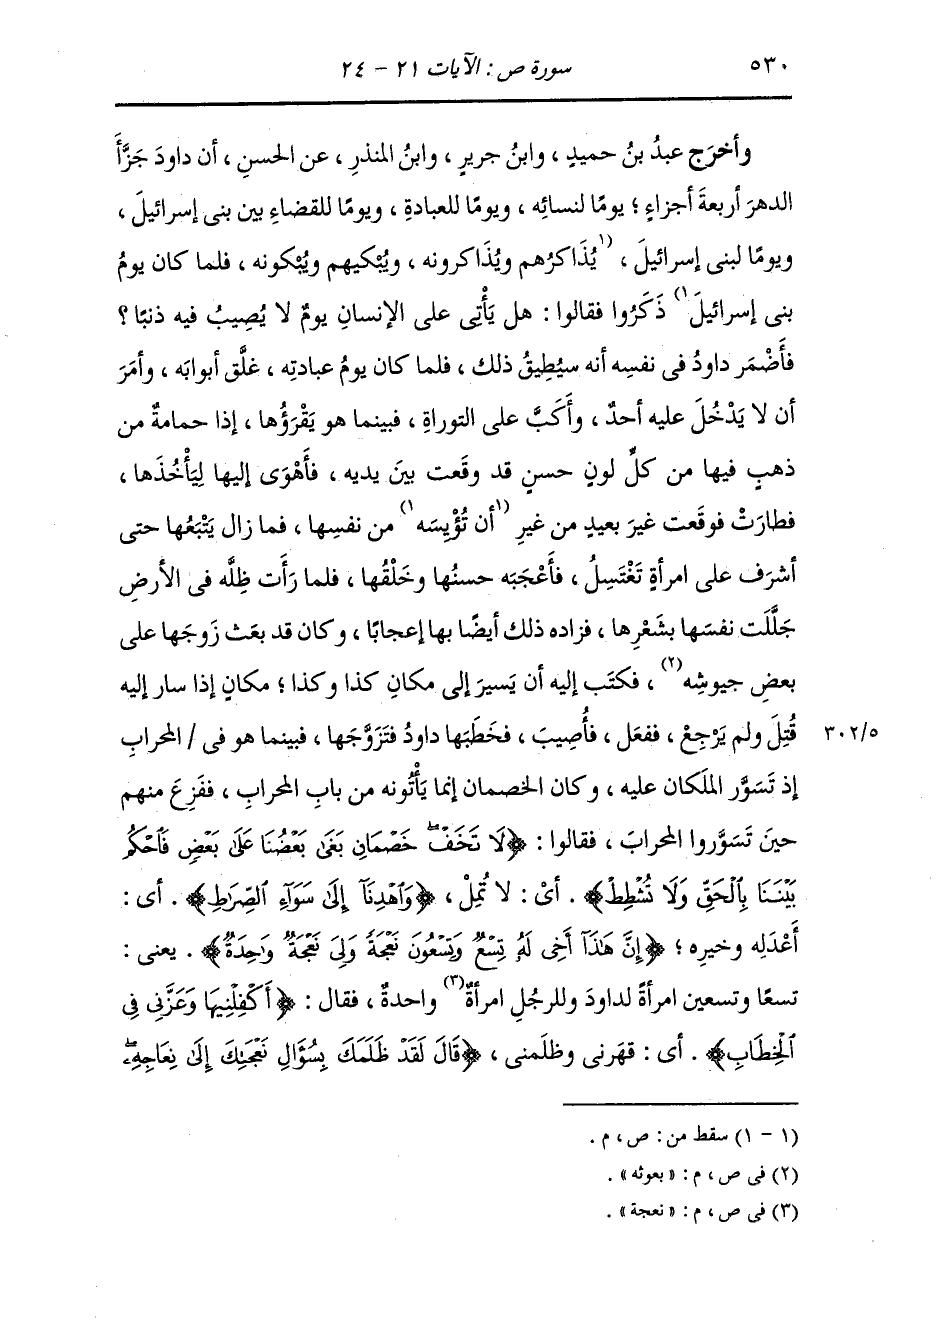 ٥٣٠ سورة ص : الآيات ٢١ - ٢٤
وأخرَج عبدُ بنُ حميدٍ ، وابنُ جريرٍ ، وابنُ المنذرِ ، عن الحسنِ ، أن داودَ جَزَّأَ
الدهرَ أربعةَ أجزاءٍ ؛ يومًا لنسائِه ، ويومًا للعبادةِ ، ويومًا للقضاءِ بين بنى إسرائيلَ ،
ويومًا لبنى إسرائيلَ ، (١يُذَاكرُهم ويُذَاكرونه ، ويُبْكيهم ويُبْكونه ، فلما كان يومُ
بنى إسرائيلَ١) ذَكَرُوا فقالوا : هل يَأْتِى على الإنسانِ يومٌ لا يُصِيبُ فيه ذنبًا ؟
فأَضْمَر داودُ فى نفسِه أنه سيُطِيقُ ذلك ، فلما كان يومُ عبادتِه ، غلَّق أبوابَه ، وأمَرَ
أن لا يَدْخُلَ عليه أحدٌ ، وأَكَبَّ على التوراةِ ، فبينما هو يَقْرَؤُها ، إذا حمامةٌ من
ذهبٍ فيها من كلِّ لونٍ حسنٍ قد وقَعت بينَ يديه ، فأَهْوَى إليها لِيَأْخُذَها ،
فطارَتْ فوقَعت غيرَ بعيدٍ من غيرِ (١أن تُؤْيِسَه١) من نفسِها ، فما زال يَتْبَعُها حتى
أشرَف على امرأةٍ تَغْتَسِلُ ، فأَعْجَبَه حسنُها وخَلْقُها ، فلما رَأَت ظِلَّه فى الأرضِ
جَلَّلَت نفسَها بشَعْرِها ، فزاده ذلك أيضًا بها إعجابًا ، وكان قد بعَث زَوجَها على
بعضِ جيوشِه(٢) ، فكتَب إليه أن يَسيرَ إلى مكانِ كذا وكذا ؛ مكانٍ إذا سار إليه
قُتِلَ ولم يَرْجِعْ ، ففعَل ، فأُصِيبَ ، فخَطَبَها داودُ فتَزَوَّجَها ، فبينما هو فى / المحرابِ ٣٠٢/٥
إذ تَسَوَّر الملَكان عليه ، وكان الخصمان إنما يَأْتُونه من بابِ المحرابِ ، ففَزِعَ منهم
حينَ تَسَوَّروا المحرابَ ، فقالوا : ﴿لَا تَخَفْۖ خَصْمَانِ بَغَىٰ بَعْضُنَا عَلَىٰ بَعْضٍ فَٱحْكُم
بَيْنَنَا بِٱلْحَقِّ وَلَا تُشْطِطْ﴾ . أىْ : لا تُمِلْ ، ﴿وَٱهْدِنَآ إِلَىٰ سَوَآءِ ٱلصِّرَٰطِ﴾ . أى :
أَعْدَلِه وخيرِه ؛ ﴿إِنَّ هَٰذَآ أَخِى لَهُۥ تِسْعٌ وَتِسْعُونَ نَعْجَةً وَلِىَ نَعْجَةٌ وَٰحِدَةٌ﴾ . يعنى :
تسعًا وتسعين امرأةً لداودَ وللرجُلِ امرأةٌ(٣) واحدةٌ ، فقال : ﴿أَكْفِلْنِيهَا وَعَزَّنِى فِى
ٱلْخِطَابِ﴾ . أى : قهَرنى وظلَمنى ، ﴿قَالَ لَقَدْ ظَلَمَكَ بِسُؤَالِ نَعْجَتِكَ إِلَىٰ نِعَاجِهِۦۖ
(١ - ١) سقط من : ص ، م .
(٢) فى ص ، م : « بعوثه » .
(٣) فى ص ، م : « نعجة » .